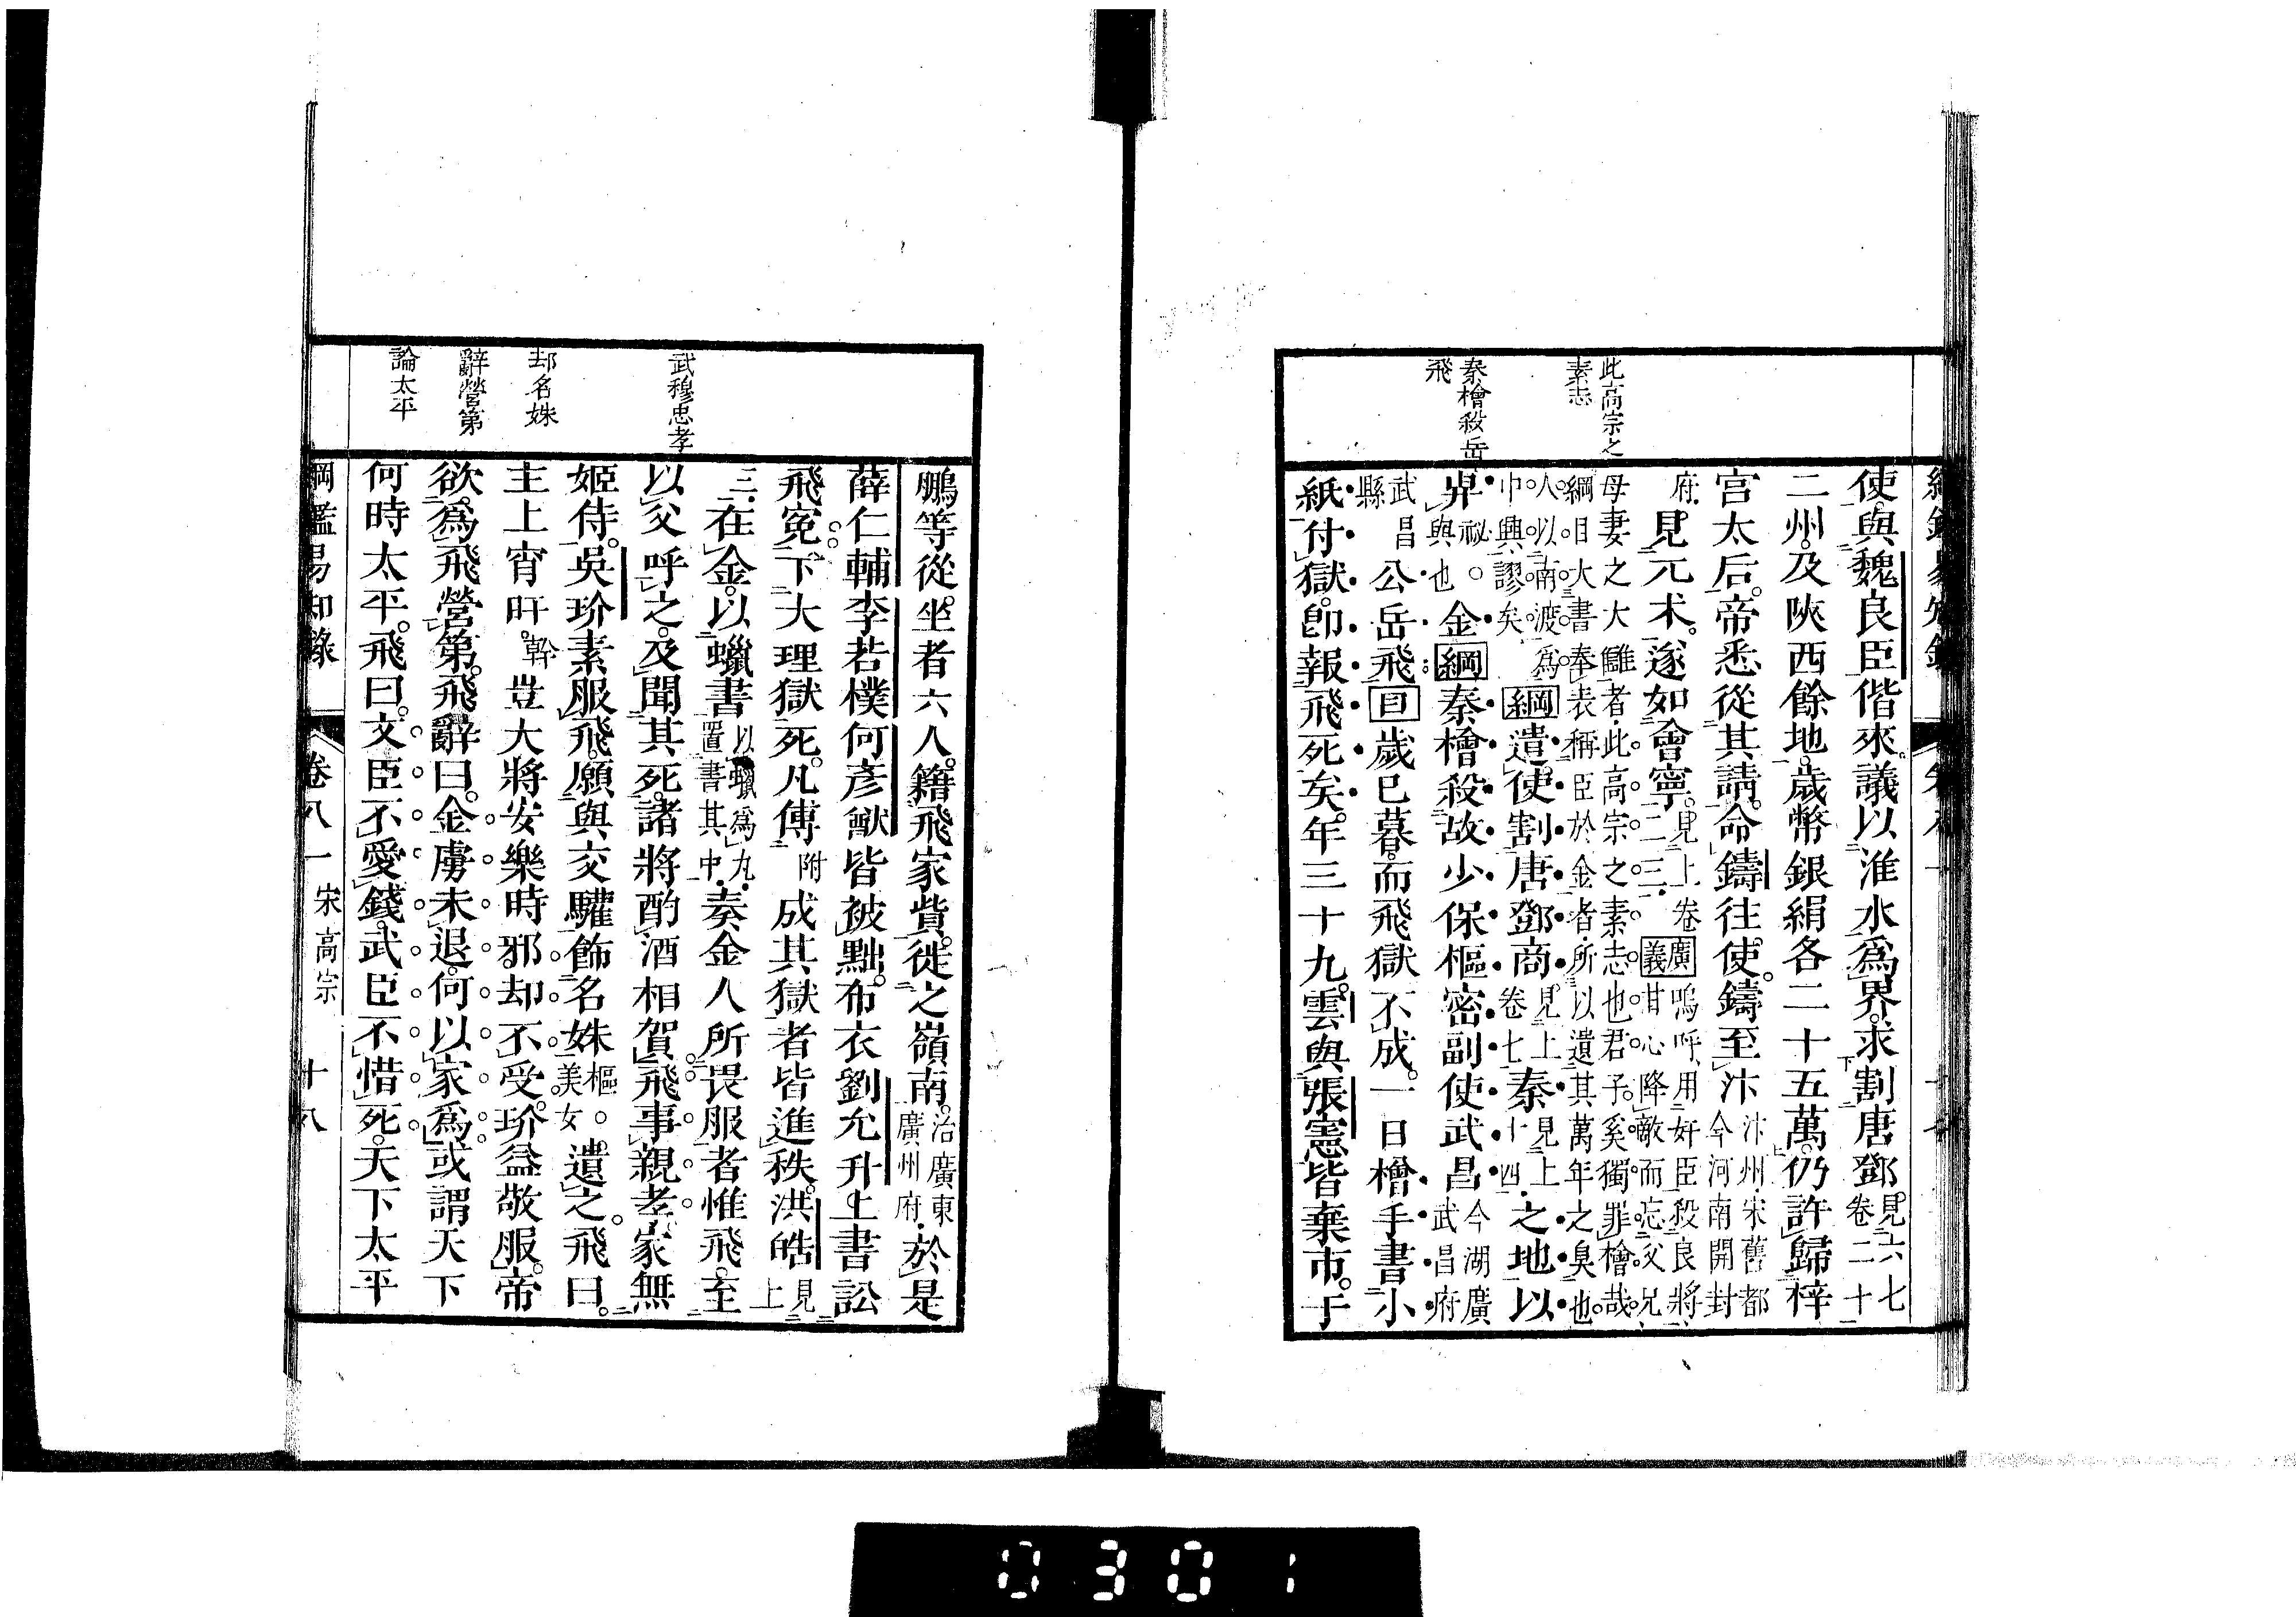 此高宗之
素志
秦檜殺岳
飛
使與魏良臣偕來議以淮水爲界求割唐鄧見六七卷二十
二州及陝西餘地歲幣銀絹各二十五萬仍許歸梓
宮太后帝悉從其請命鑄往使鑄至汴汴州宋舊都今河南開封
府見元朮遂如會寧見上卷二三廣義嗚呼用奸臣殺良將甘心降敵而忘父兄
母妻之大讎者此高宗之素志也君子奚獨罪檜哉綱目大書奉表稱臣於金者所以遺其萬年之臭也
人以南渡爲中興謬矣綱遣使割唐鄧商見上卷七秦見上十四之地以
畀祕與也金綱秦檜殺故少保樞密副使武昌今湖廣武昌府
武昌縣公岳飛目歲已暮而飛獄不成一日檜手書小
紙付獄卽報飛死矣年三十九雲與張憲皆棄市于
武穆忠孝
却名姝
辭營第
論太平
鵬等從坐者六人籍飛家貲徙之嶺南治廣東廣州府於是
薛仁輔李若樸何彥猷皆被黜布衣劉允升上書訟
飛寃下大理獄死凡傅附成其獄者皆進秩洪皓見上
三在金以蠟書以蠟爲丸置書其中奏金人所畏服者惟飛至
以父呼之及聞其死諸將酌酒相賀飛事親孝家無
姬侍吳玠素服飛願與交驩飾名姝樞美女遺之飛曰
主上宵旰幹豈大將安樂時邪却不受玠益敬服帝
欲爲飛營第飛辭曰金虜未退何以家爲或謂天下
何時太平飛曰文臣不愛錢武臣不惜死天下太平
綱鑑易知錄 卷八一 宋高宗 十八
0301